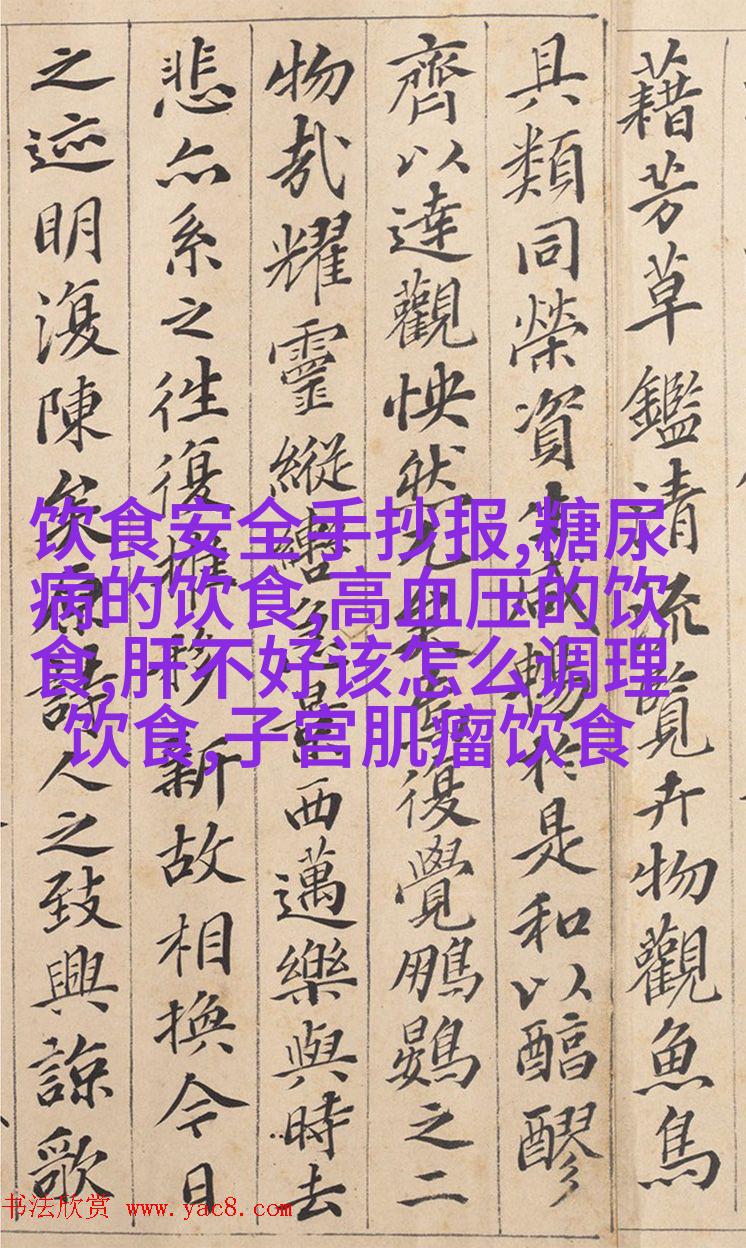 藉芳草鑑清流覽卉物觀魚鳥
具類同榮資生咸暢於是和以醕醪
齊以達觀怏然兀矣焉復覺鵬鷃之二
物哉耀靈縱轡急景西邁樂與時去
悲亦系之往復推移新故相換今日
之迹明復陳矣原詩人之致興諒歌
饮食安全手抄报,糖尿
病的饮食,高血压的饮
食,肝不好该怎么调理
饮食,子宫肌瘤饮食
书法欣赏 www.yac8.com